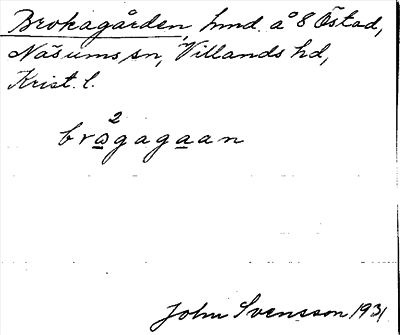 Brokagården, hmd. å 8 Östad,
Näsums sn, Villands hd,
Krist. l.
2
bragagaan
John Svensson 1931